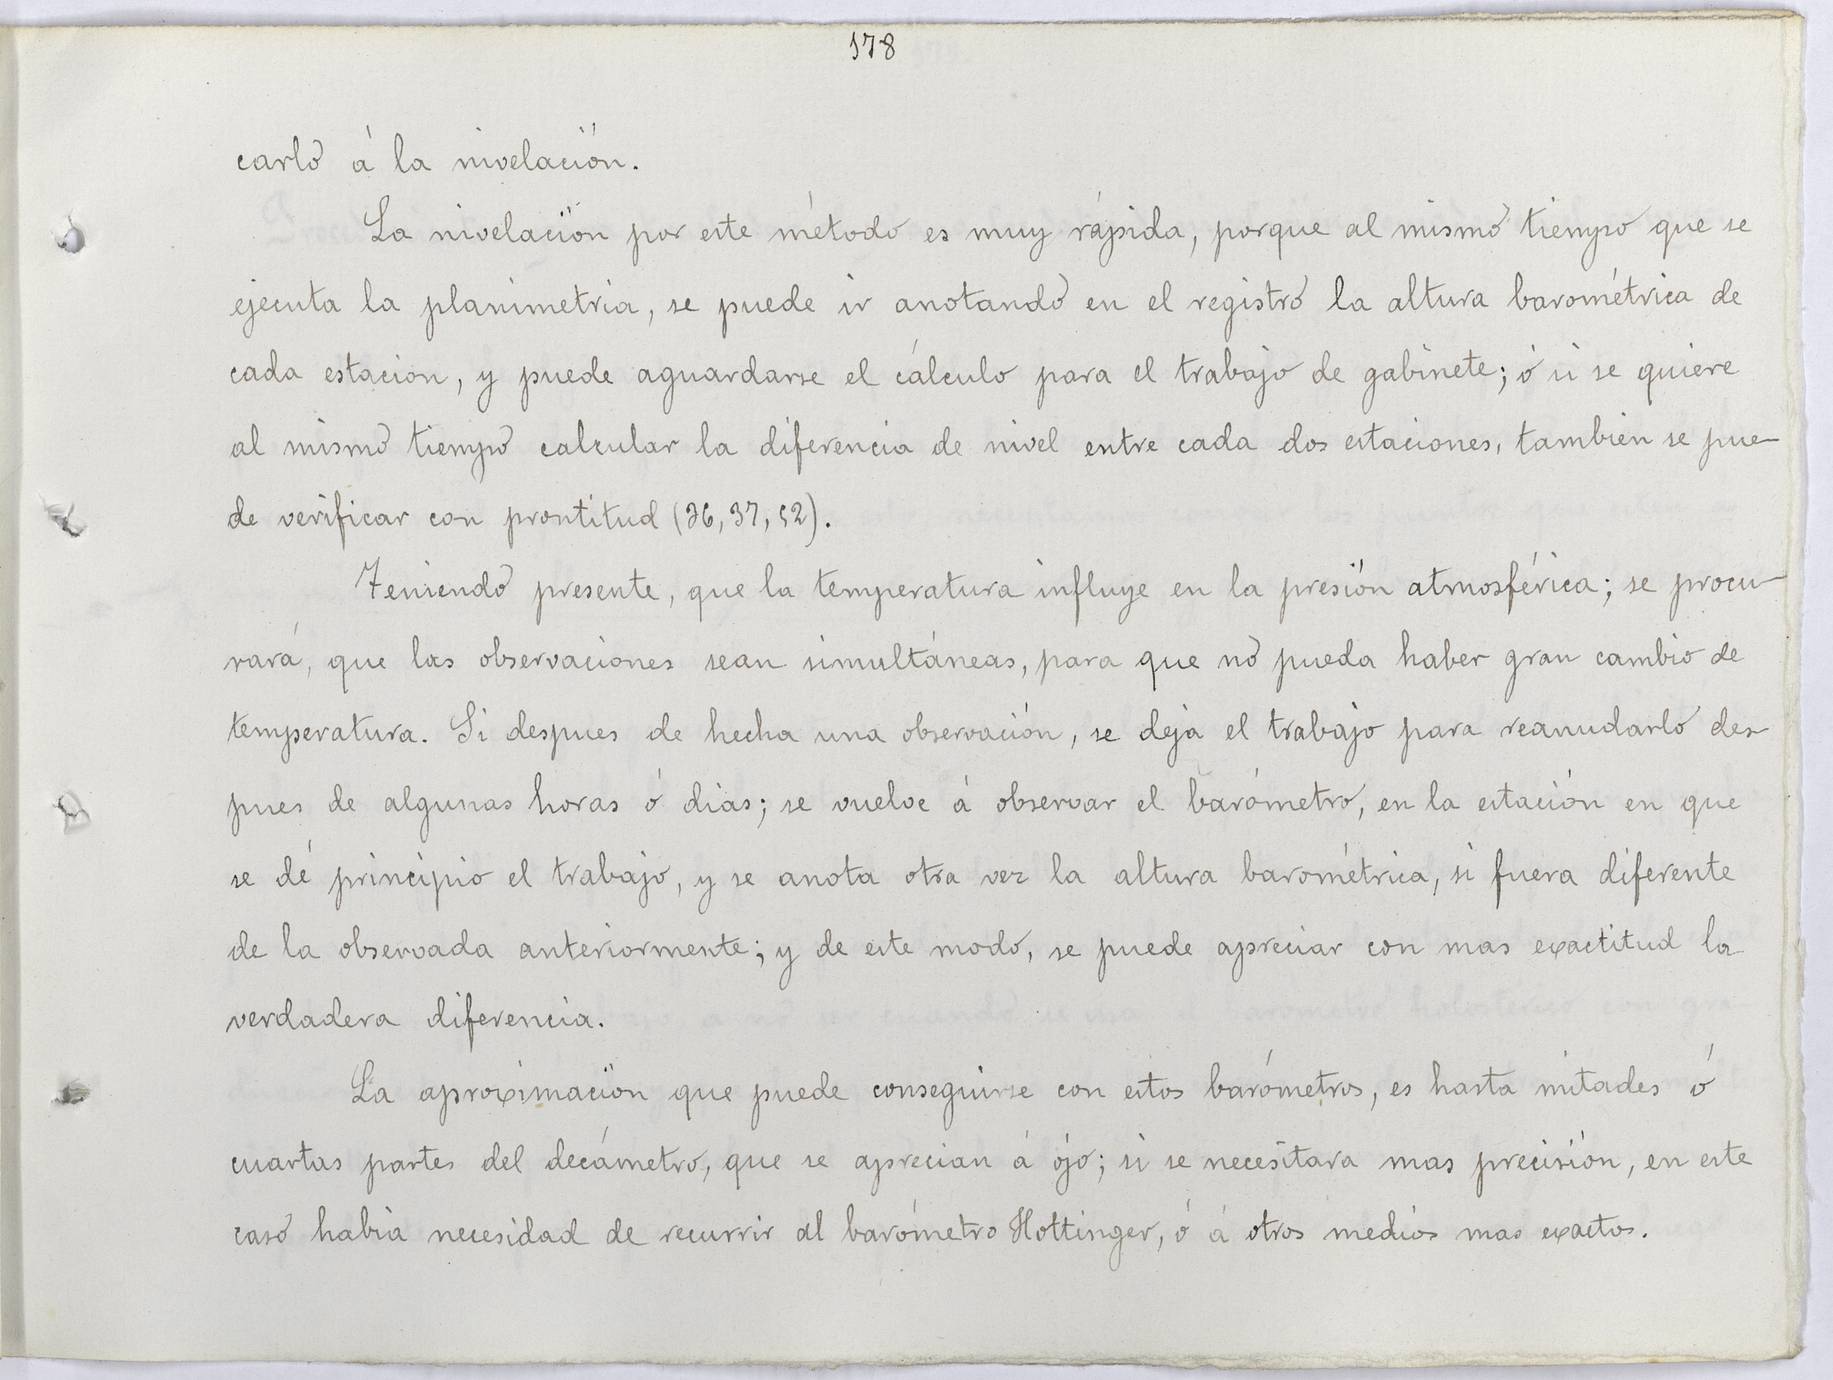 178
carlo á la nivelación.
La nivelación por este método es muy rápida, porque al mismo tiempo que se
ejecuta la planimetria, se puede ir anotando en el registro la altura barométrica de
cada estación, y puede aguardarse el cálculo para el trabajo de gabinete; ó si se quiere
al mismo tiempo calcular la diferencia de nivel entre cada dos estaciones, tambien se pue-
de verificar con prontitud (36, 37, 52).
Teniendo presente, que la temperatura influye en la presión atmosférica; se procu-
rará, que las observaciones sean simultáneas, para que no pueda haber gran cambio de
temperatura. Si despues de hecha una observación, se deja el trabajo para reanudarlo des-
pues de algunas horas ó dias; se vuelve á observar el barómetro, en la estación en que
se dé principio el trabajo, y se anota otra vez la altura barométrica, si fuera diferente
de la observada anteriormente; y de este modo, se puede apreciar con mas exactitud la
verdadera diferencia.
La aproximación que puede conseguirse con estos barómetros, es hasta mitades ó
cuartas partes del decámetro, que se aprecian á ojo; si se necesitara mas precisión, en este
caso habia necesidad de recurrir al barómetro Hottinger, ó á otros medios mas exactos.